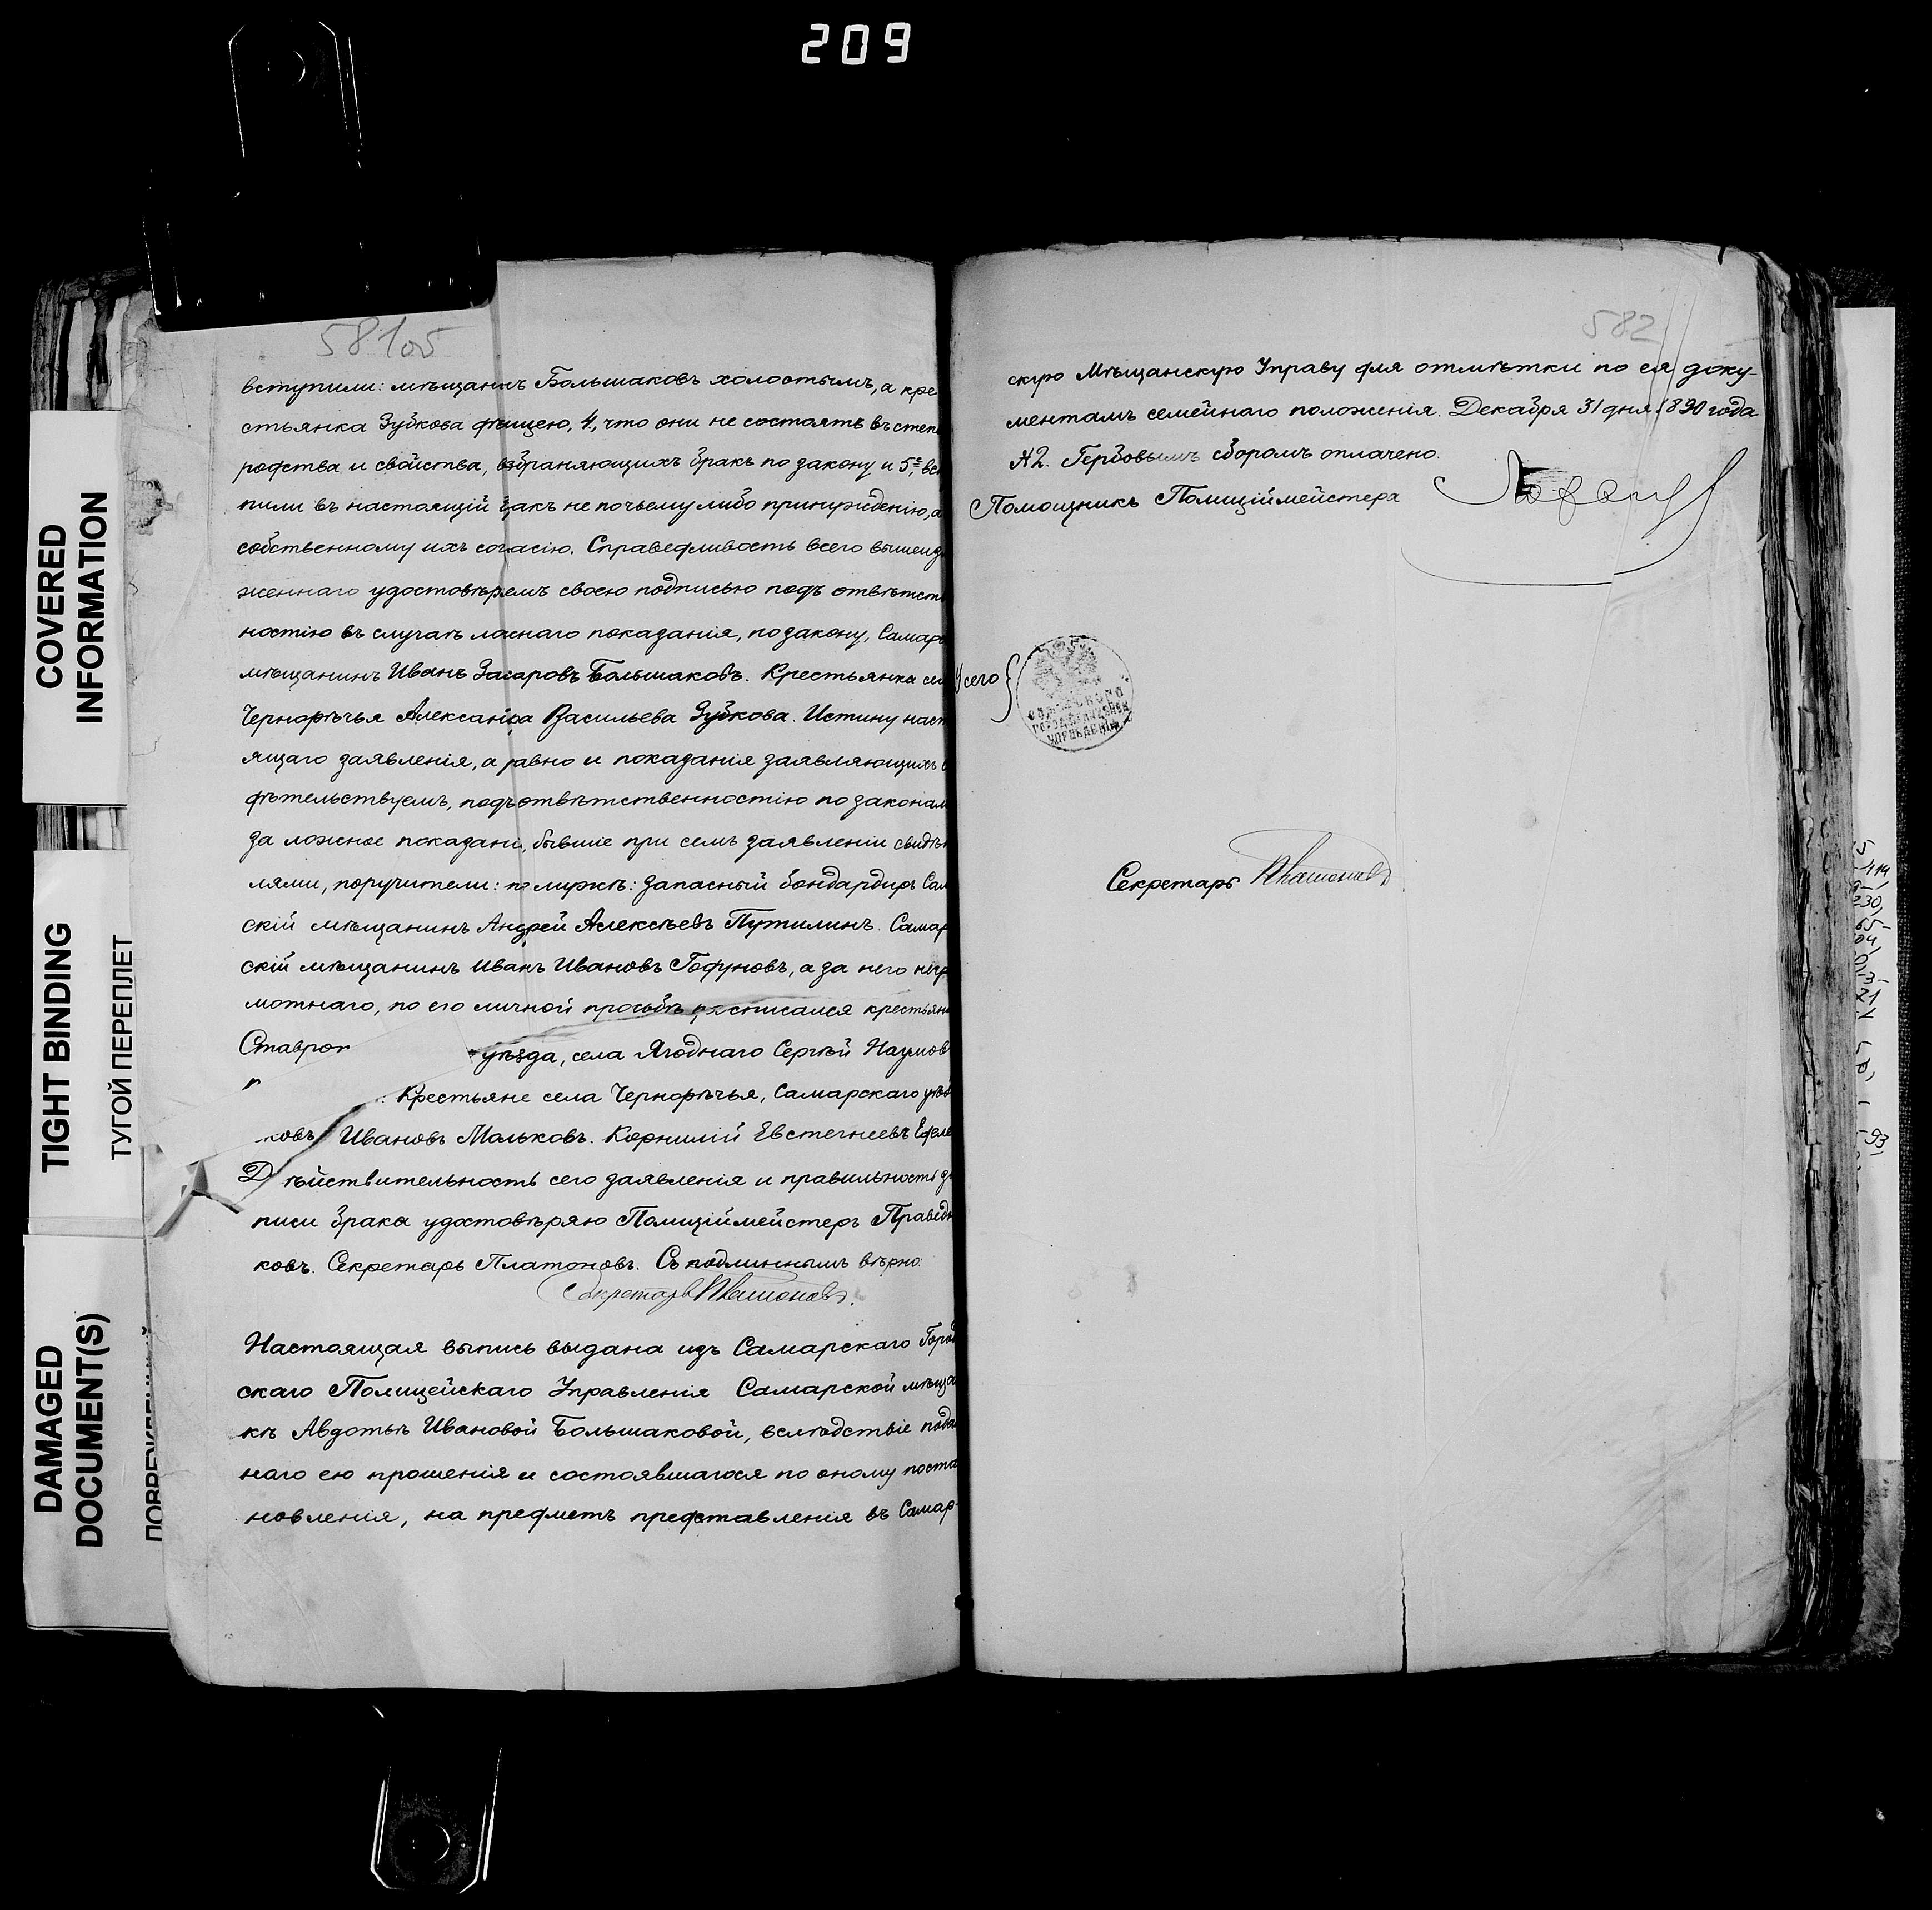 209
COVERED
INFORMATION
TIGHT BINDING
ТУГОЙ ПЕРЕПЛЕТ
DAMAGED
DOCUMENT(S)
581об
вступили: мѣщанинъ Большаковъ холостымъ, а кре
стьянка Зубкова дѣвицею, 4, что они не состоятъ въ степ
родства и свойства, возбраняющихъ бракъ по закону и 5, вс
пили въ настоящій бракъ не по чьему либо принужденію, а
собственному ихъ согласію. Справедливость всего вышеиз
женнаго удостовѣряемъ своею подписью подъ отвѣтств
ностію въ случаѣ ложнаго показанія, по закону, Самар
мѣщанинъ Иванъ Захаровъ Большаковъ. Крестьянка сел
Чернорѣчья Александра Васильева Зубкова. Истину наст
ящаго заявленія, а равно и показанія заявляющихъ
дѣтельствуемъ, подъ отвѣтственностію по законам
за ложное показані, бывшіе при семъ заявленіи свидѣт
лями, поручители: запасный бомбардиръ Сам
скій мѣщанинъ Андрей Алексѣевъ Путилинъ. Самар
скій мѣщанинъ Иванъ Ивановъ Годуновъ, а за него негр
мотнаго, по его личной просьбѣ росписался крестьян
Ставроп уѣзда, села Ягоднаго Сергѣй Наумов
Крестьяне села Чернорѣчья, Самарскаго уѣз
ковъ Ивановъ Мальковъ. Корнилій Евстегнеевъ
Дѣйствительность сего заявленія и правильность за
писи брака удостовѣряю Полиціймейстеръ Праведн
ковъ. Секретарь Платоновъ. Съ подлиннымъ вѣрно:
Секретарь Платоновъ.
Настоящая выпись выдана изъ Самарскаго Город
скаго Полицейскаго Управленія Самарской мѣща
кѣ Авдотьѣ Ивановой Большаковой, вслѣдствіе подан
наго ею прошенія и состоявшагося по оному поста
новленія, на предметъ представленія въ Самар-
582
скую Мѣщанскую Управу для отмѣтки по ея доку-
ментамъ семейнаго положенія. Декабря 31 дня 1890 года
№2. Гербовымъ сборомъ оплачено.
Помощникъ Полиціймейстера
УПРАВЛЕНІЯ
Секретарь Платоновъ